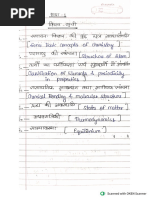 भाग - 1
विषय सूची
1. रसायन विज्ञान की कुछ मूल अवधारणाएँ
[Some basic concepts of chemistry]
2. परमाणु की संरचना
[Structure of Atom]
3. तत्वों का वर्गीकरण एवं गुणधर्मों में आवर्तिता
[Classification of Elements & periodicity in properties]
4. रासायनिक आबंधन तथा आण्विक संरचना
[Chemical Bonding & molecular structure]
5. द्रव्य की अवस्थाएँ
[State of matter]
6. ऊष्मागतिकी [Thermodynamics]
7. साम्यावस्था
[Equilibrium]
CS Scanned with OKEN Scanner